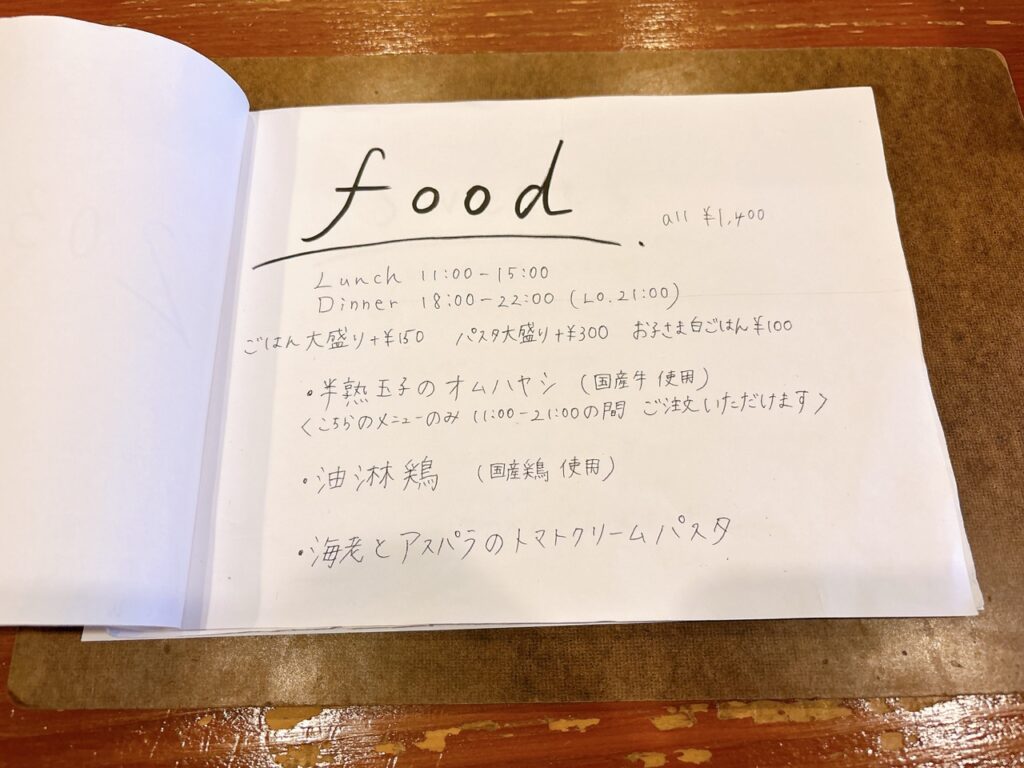 food
all ¥1,400
Lunch 11:00-15:00
Dinner 18:00-22:00 (LO.21:00)
ごはん大盛り+¥150 パスタ大盛り+¥300 お子さま白ごはん¥100
・半熟玉子のオムハヤシ (国産牛使用)
〈こちらのメニューのみ 11:00-21:00の間 ご注文いただけます〉
・油淋鶏 (国産鶏使用)
・海老とアスパラのトマトクリームパスタ